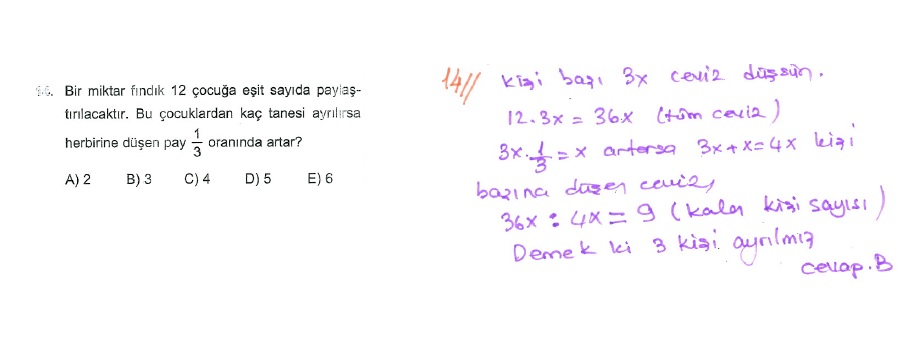 14. Bir miktar fındık 12 çocuğa eşit sayıda paylaş-
tırılacaktır. Bu çocuklardan kaç tanesi ayrılırsa
herbirine düşen pay 1/3 oranında artar?
A) 2 B) 3 C) 4 D) 5 E) 6
14// kişi başı 3x ceviz düşsün.
12.3x = 36x (tüm ceviz)
3x.1/3 = x artarsa 3x+x=4x kişi
başına düşen ceviz,
36x : 4x = 9 (kalan kişi sayısı)
Demek ki 3 kişi ayrılmış
cevap.B